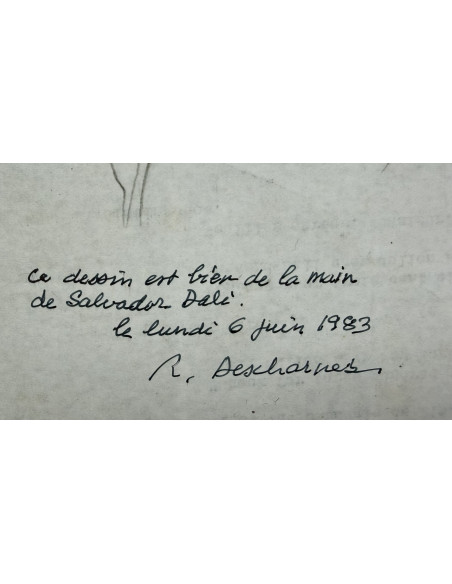 Ce dessin est bien de la main
de Salvador Dalí.
le lundi 6 juin 1983
R. Descharnes